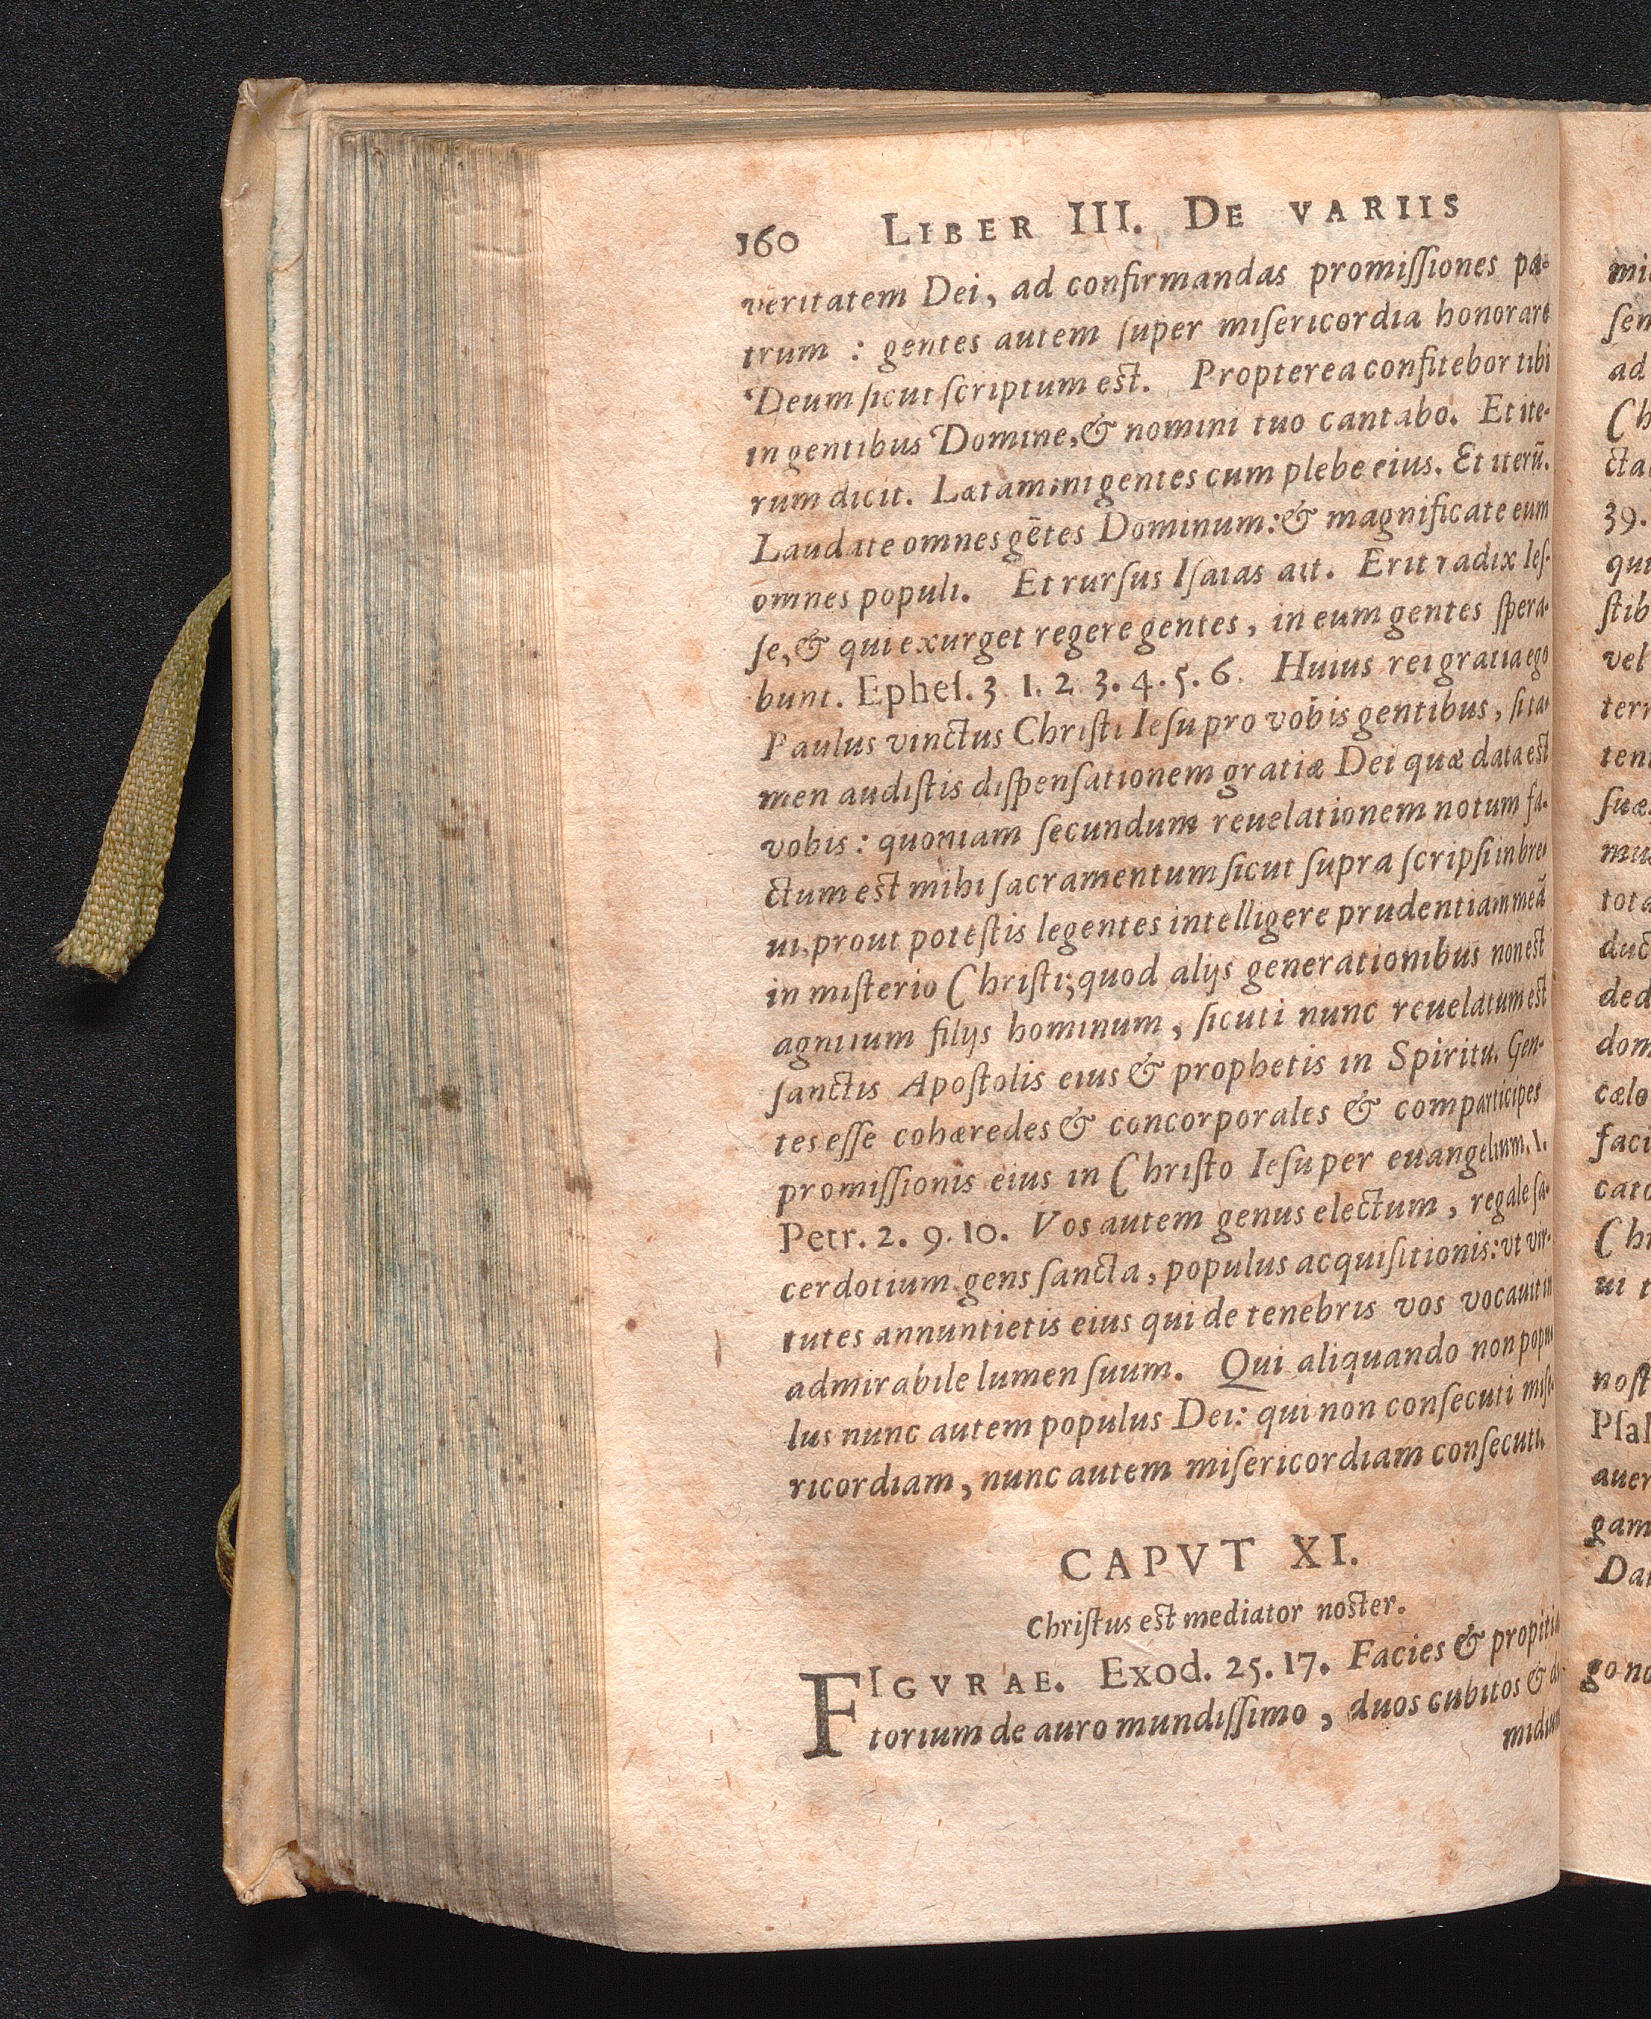 160 LIBER III. DE VARIIS
veritatem Dei, ad confirmandas promiſſiones pa-
trum : gentes autem ſuper miſericordia honorare
Deum ſicut ſcriptum est. Propterea confitebor tibi
in gentibus Domine, & nomini tuo cantabo. Et ite-
rum dicit. Lætamini gentes cum plebe eius. Et iterũ.
Laudate omnes gẽtes Dominum: & magnificate eum
omnes populi. Et rurſus Iſaias ait. Erit radix Ieſ-
ſe, & qui exurget regere gentes, in eum gentes ſpera-
bunt. Epheſ. 3 1. 2 3. 4. 5. 6. Huius rei gratia ego
Paulus vinctus Chriſti Ieſu pro vobis gentibus, ſi ta-
men audiſtis diſpenſationem gratiæ Dei quæ data est
vobis: quoniam ſecundum reuelationem notum fa-
ctum est mihi ſacramentum ſicut ſupra ſcripſi in bre-
ui, prout poteſtis legentes intelligere prudentiam meã
in miſterio Chriſti; quod alijs generationibus non est
agnitum filijs hominum, ſicuti nunc reuelatum est
ſanctis Apoſtolis eius & prophetis in Spiritu. Gen-
tes eſſe cohæredes & concorporales & comparticipes
promiſſionis eius in Chriſto Ieſu per euangelium. 1.
Petr. 2. 9. 10. Vos autem genus electum, regale ſa-
cerdotium, gens ſancta, populus acquiſitionis: vt vir-
tutes annuntietis eius qui de tenebris vos vocauit in
admirabile lumen ſuum. Qui aliquando non popu
lus nunc autem populus Dei: qui non conſecuti miſe-
ricordiam, nunc autem miſericordiam conſecuti.
CAPVT XI.
Chriſtus est mediator noster.
FIGVRAE. Exod. 25. 17. Facies & propitia
torium de auro mundiſſimo, duos cubitos & di-
midium
mi
ſen
ad
Ch
cta
39.
qui
ſtib
vel
terr
ten
ſuæ
mu
tota
duc
ded
dom
cælo
faci
cato
Chr
ui t
noſt
Pſal
auer
gam
Da
gono